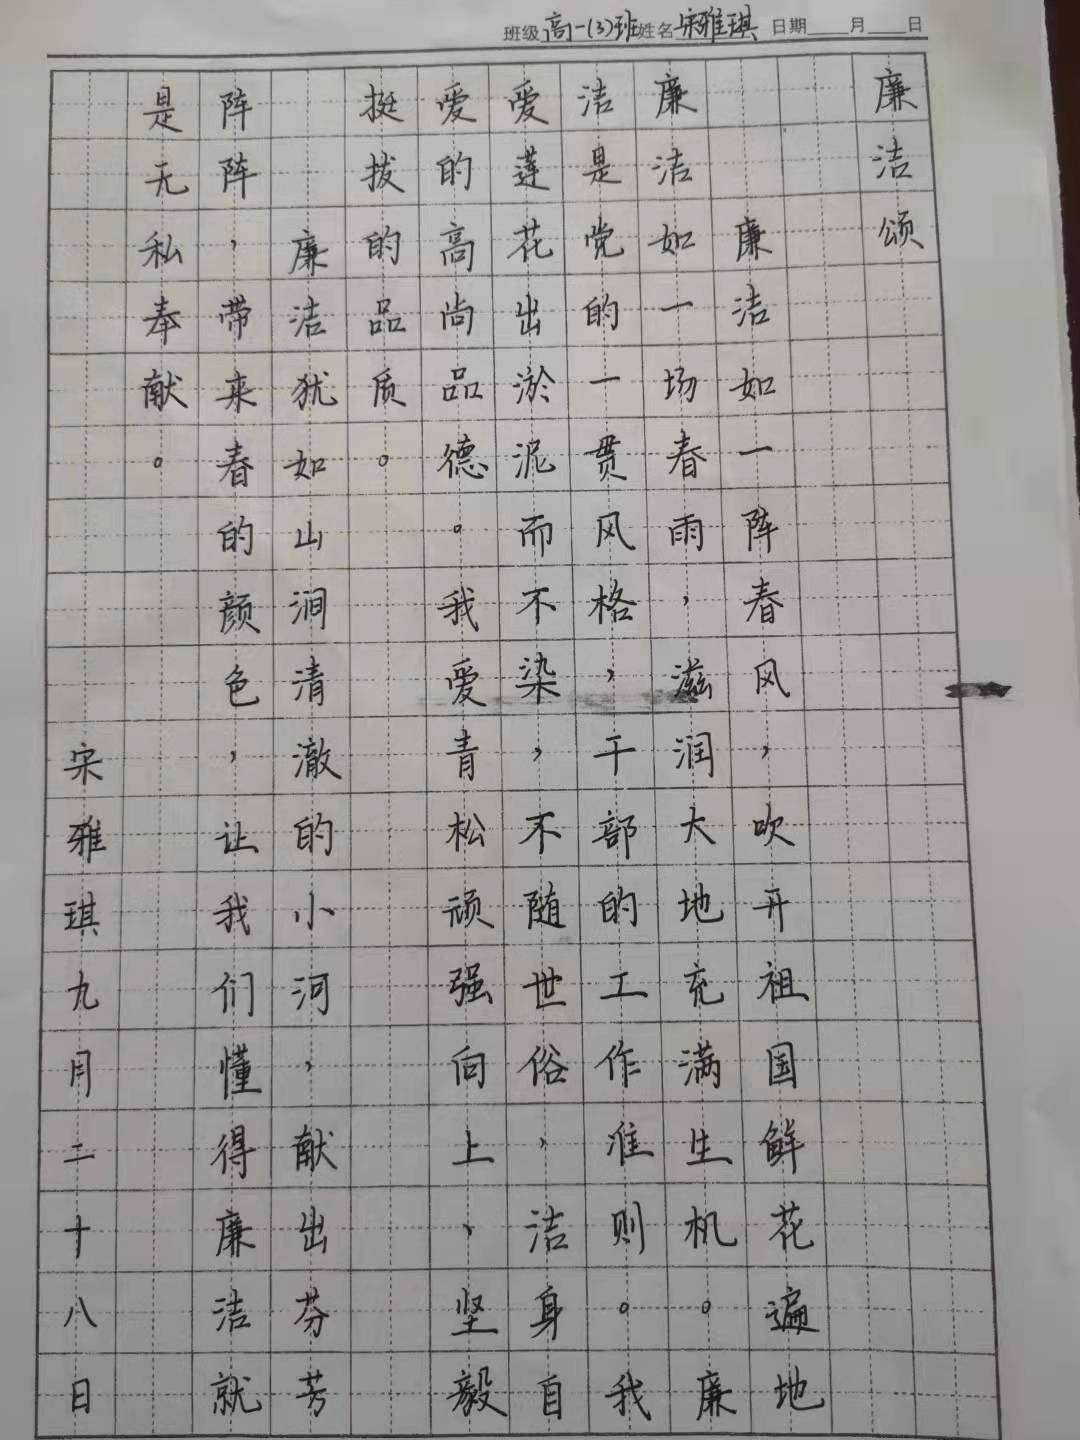 班级高一(3)班姓名宋雅琪 日期____月____日
廉洁颂
廉洁如一阵春风，吹开祖国鲜花遍地
廉洁如一场春雨，滋润大地充满生机。廉
洁是党的一贯风格，干部的工作准则。我
爱莲花出淤泥而不染，不随世俗，洁身自
爱的高尚品德。我爱青松顽强向上、坚毅
挺拔的品质。
廉洁犹如山涧清澈的小河，献出芬芳
阵阵，带来春的颜色，让我们懂得廉洁就
是无私奉献。
宋雅琪九月二十八日